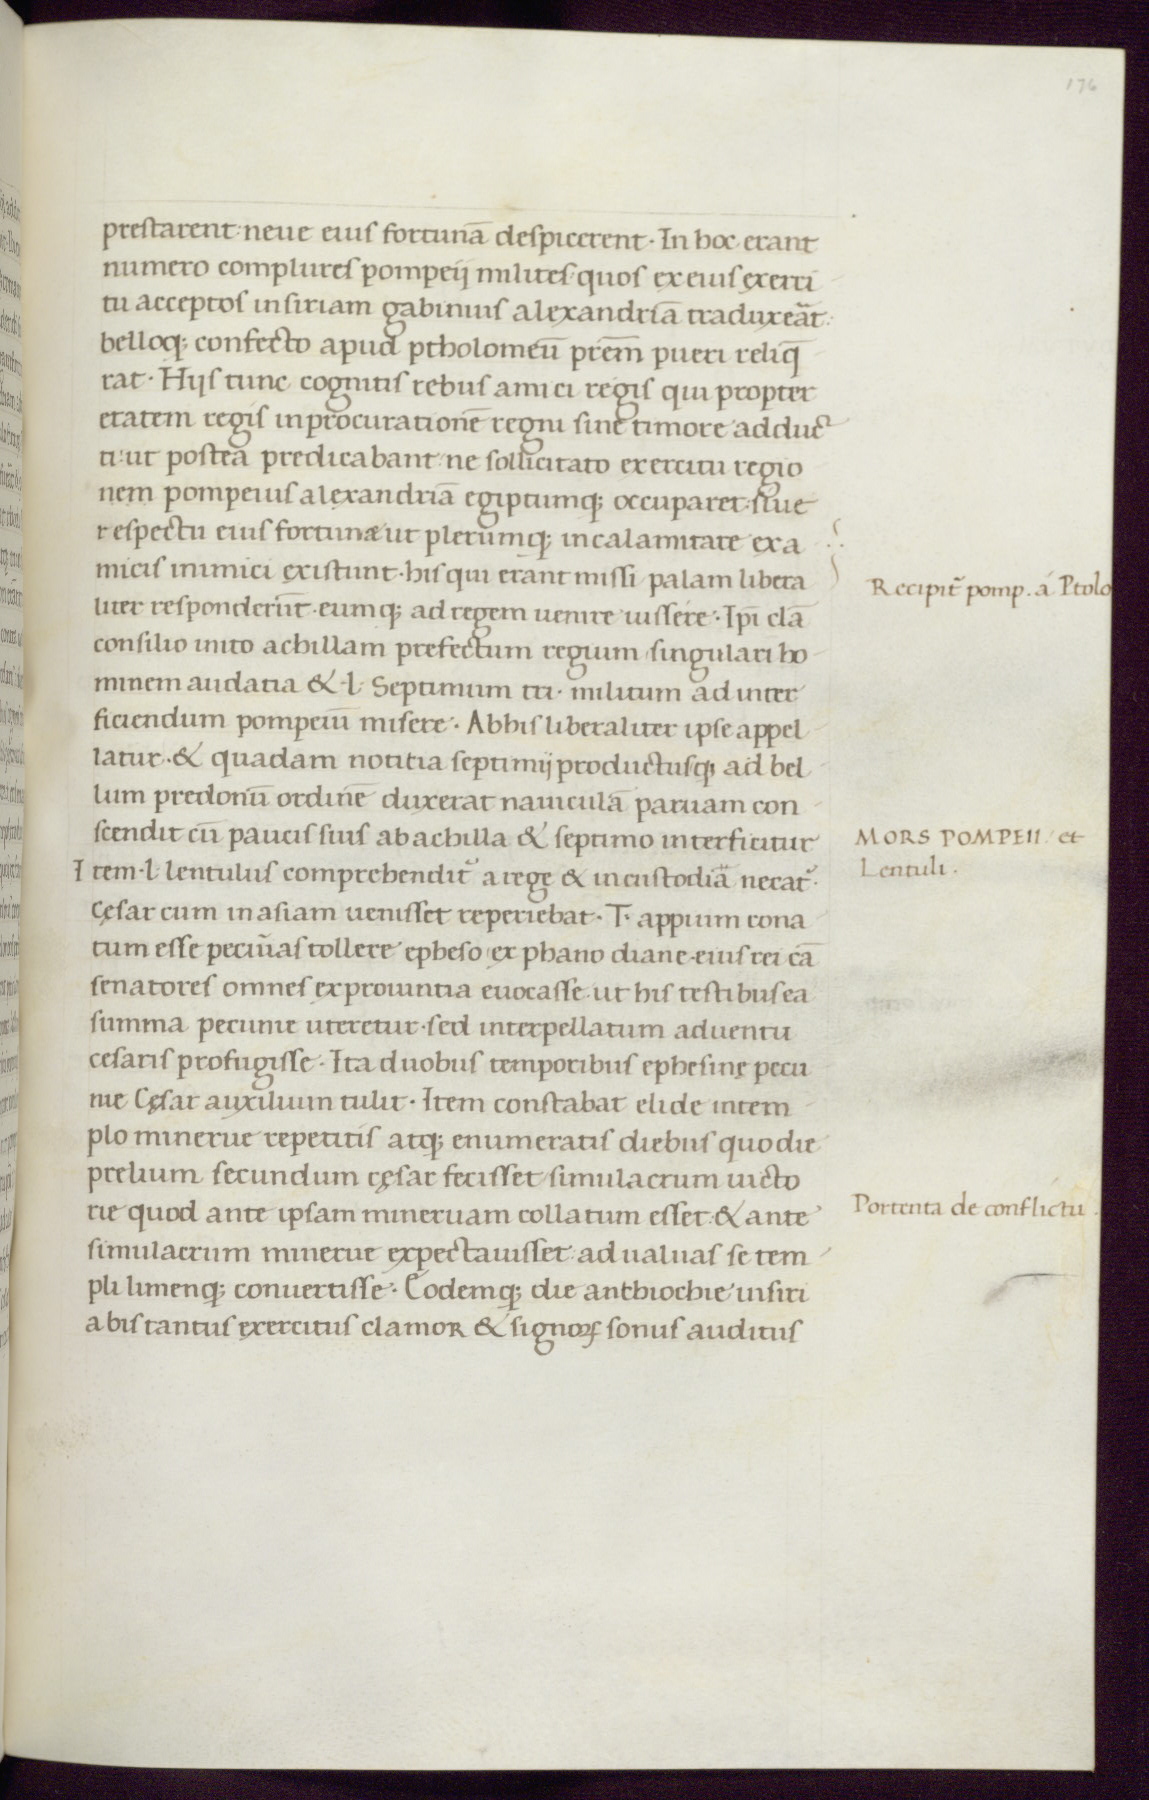 176
prestarent: neue eius fortunā despicerent· In hoc erant
numero complures pompeij milites· quos ex eius exerci
tu acceptos in siriam gabinius alexandriā traduxeāt:
belloq; confecto apud ptholomeū prēm pueri reliq̄
rat· Hijs tunc cognitis rebus amici regis qui propter
etatem regis in procurationē regni sine timore adduc
ti: ut postea predicabant: ne sollicitato exercitu regio
nem pompeius alexandriā egiptumq; occuparet· siue
respectu eius fortunæ ut plerumq; in calamitate ex a
micis inimici existunt· his qui erant missi palam libera
liter responderūt· eumq; ad regem uenire iussere· Ipi clā
consilio inito achillam prefectum regium singulari ho
minem audatia & ·l· Septimum tri· militum ad inter
ficiendum pompeiū misere· Ab his liberaliter ipse appel
latur· & quadam notitia septimij productusq; ad bel
lum predonū ordinē duxerat nauiculā paruam con
scendit cū paucis suis ab achilla & septimo interficitur
Item ·l· lentulus comprehendit̄ a rege & in custodiā necat̄·
Cęsar cum in asiam uenisset reperiebat· T· appium cona
tum esse pecūias tollere epheso ex phano diane· eius rei cā
senatores omnes ex prouintia euocasse· ut his testibus ea
summa pecunie uteretur· sed interpellatum aduentu
cesaris profugisse· Ita duobus temporibus ephesinę pecu
nie Cęsar auxilium tulit· Item constabat elide in tem
plo minerue repetitis atq; enumeratis diebus quo die
prelium secundum cęsar fecisset simulacrum uicto
rie quod ante ipsam mineruam collatum esset: & ante
simulacrum minerue expectauisset: ad ualuas se tem
pli limenq; conuertisse· Eodemq; die anthiochie in siri
a bis tantus exercitus clamor & signoꝝ sonus auditus
Recipit̄ pomp. á Ptolo
MORS POMPEII et
Lentuli.
Portenta de conflictu.